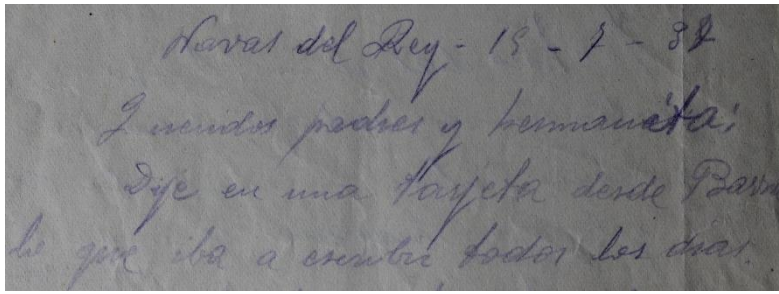 Navas del Rey - 15 - 7 - 37
Queridos padres y hermanita:
Dije en una tarjeta desde
que iba a escribir todos los dias.